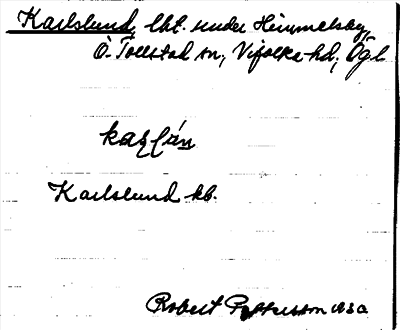 Karlslund, lht. under Himmelsby,
Ö. Tollstad sn, Vifolka hd, Ög l.
Karlslund kb.
Robert Pettersson 1930